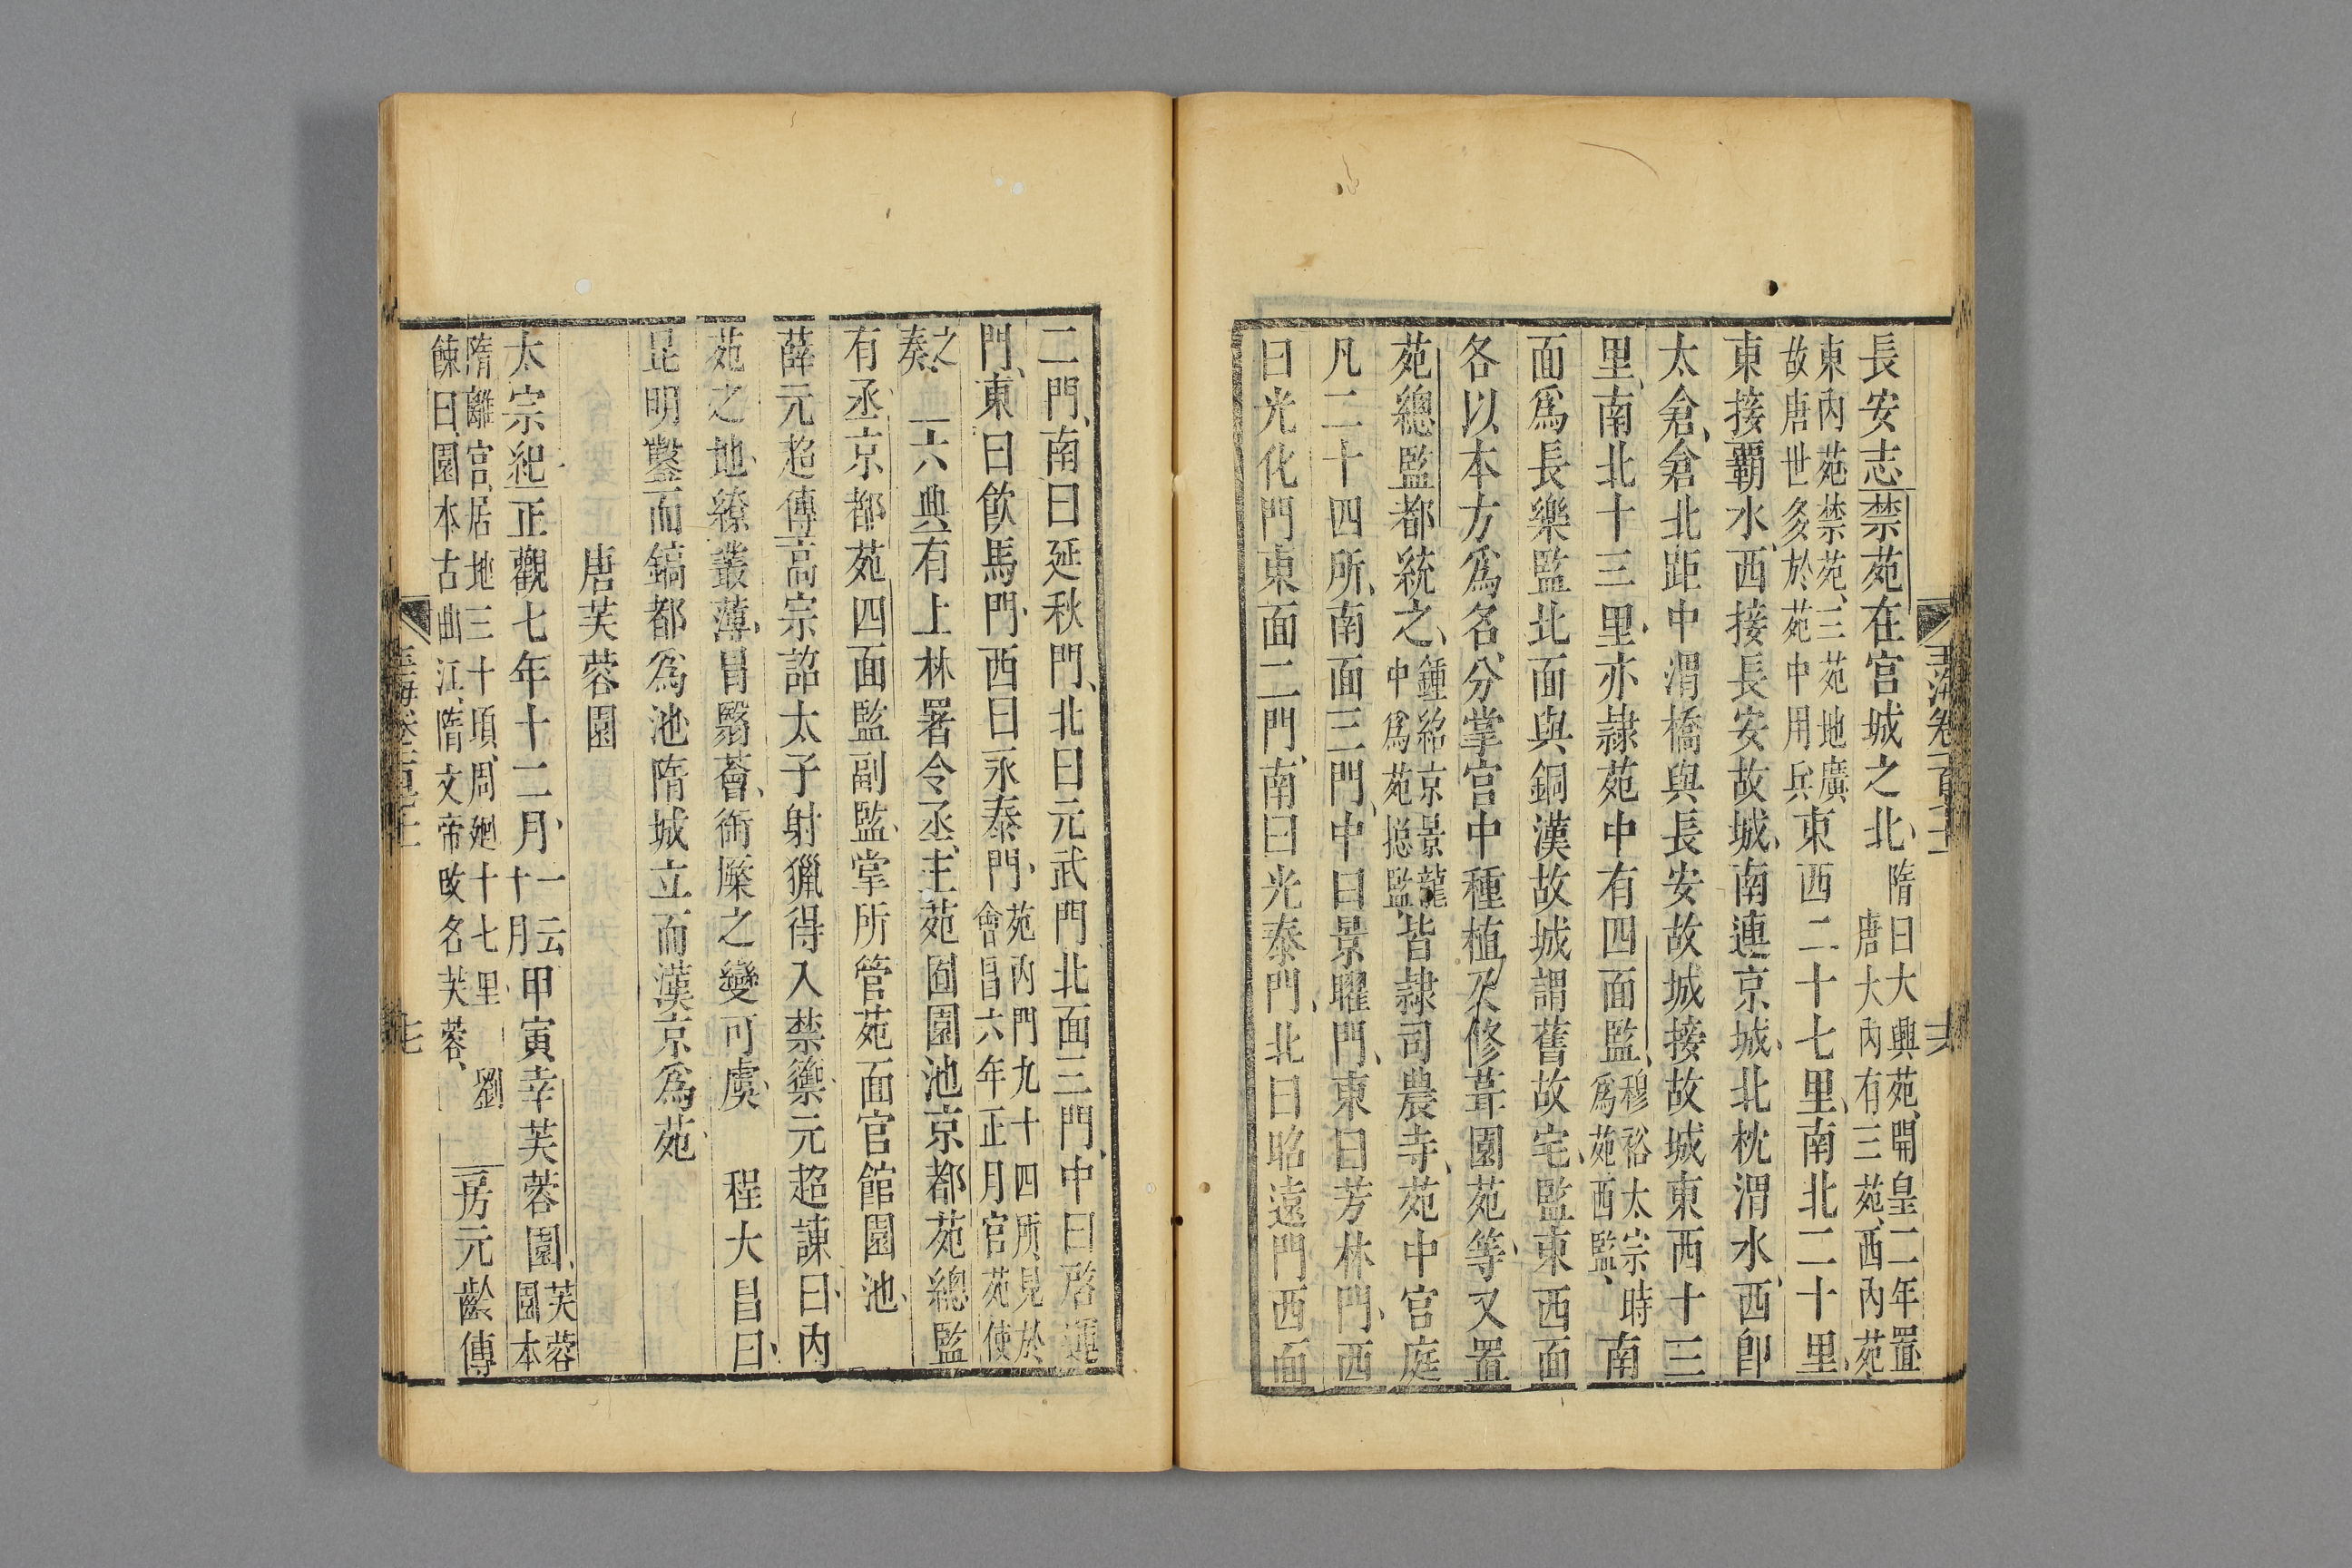 長安志禁苑在宮城之北隋曰大興苑開皇二年置唐大內有三苑西內苑
東內苑禁苑三苑地廣故唐世多於苑中用兵東西二十七里南北二十里
東接霸水西接長安故城南連京城北枕渭水西卽
太倉倉北距中渭橋與長安故城接故城東西十三
里南北十三里亦隷苑中有四面監穆裕太宗時爲苑西監南
面爲長樂監北面與銅漢故城謂舊故宅監東西面
各以本方爲名分掌宮中種植及修葺園苑等又置
苑總監都統之鍾紹京景龍中爲苑摠監皆隷司農寺苑中宮庭
凡二十四所南面三門中曰景曜門東曰芳林門西
曰光化門東面二門南曰光泰門北曰昭遠門西面
玉海卷一百七十
二門南曰延秋門北曰元武門北面三門中曰啓運
門東曰飮馬門西曰永泰門苑內門九十四所見於會昌六年正月官苑使
之奏 六典有上林署令丞主苑囿園池京都苑總監
有丞京都苑四面監副監掌所管苑面官館園池
薛元超傳高宗詔太子射獵得入禁籞元超諫曰內
苑之地繚叢薄冒翳薈銜橜之變可虞 程大昌曰
昆明鑿而鎬都爲池隋城立而漢京爲苑
唐芙蓉園
太宗紀正觀七年十二月一云十月甲寅幸芙蓉園芙蓉園本
隋離宮居地三十頃周廻十七里 劉餗曰園本古曲江隋文帝改名芙蓉 房元齡傳
玉海卷一百七十 七